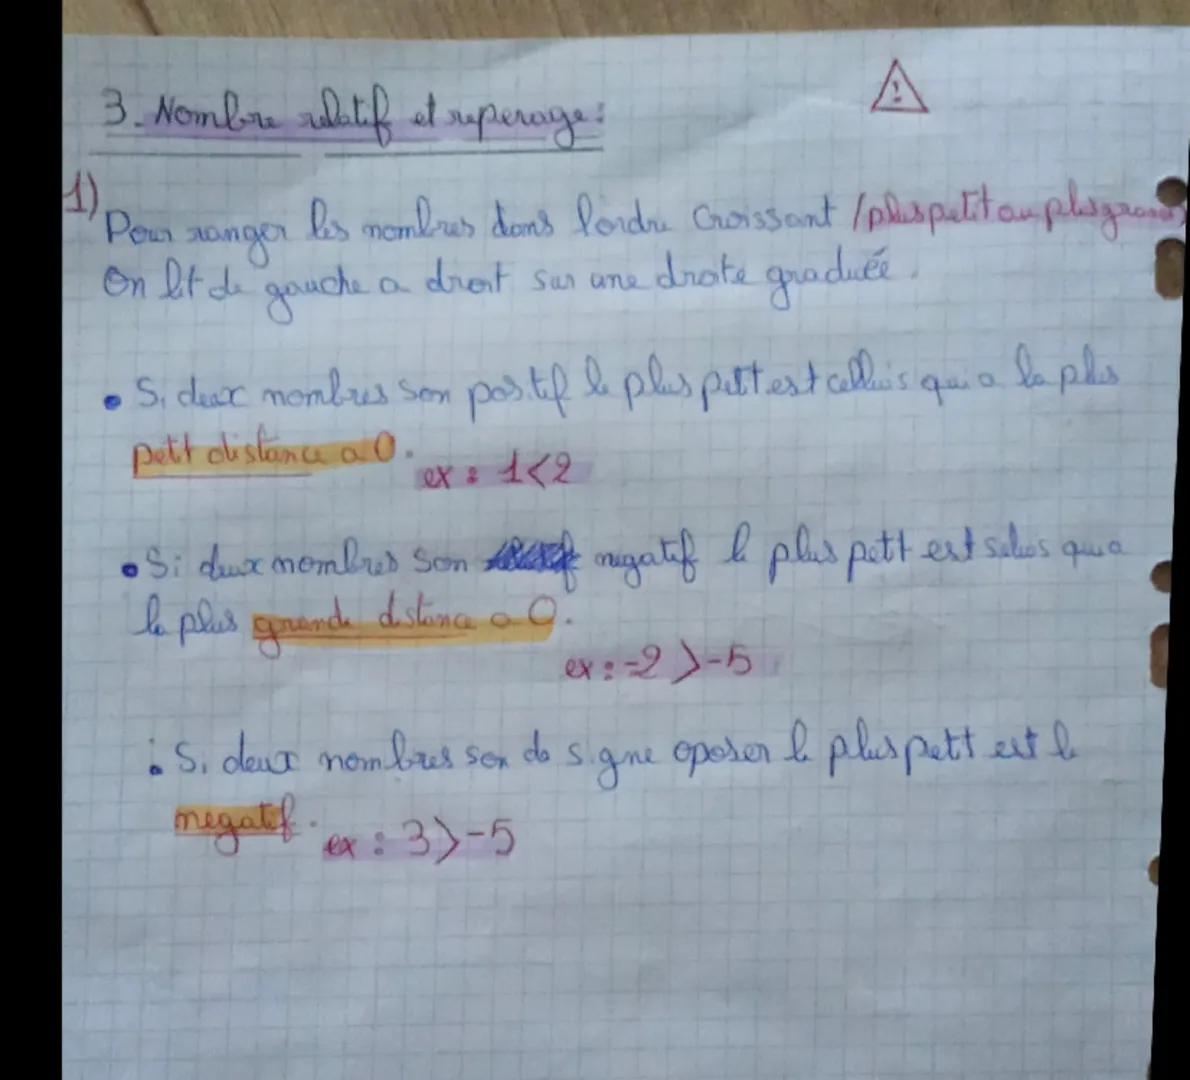 !
3. Nombre relatif et reperage :
1)
Pour ranger les nombres dans l'ordre Croissant / plus petit au plus grand
On lit de gauche a droit sur une droite graduéé.
• Si deux nombres son positif le plus petit est celluis qui a la plus
petit distance a 0.
ex : 1<2
• Si deux nombres son negatif le plus petit est seluis qui a
la plus grande distance a 0.
ex : -2 > -5
• Si deux nombres son de signe oposer le plus petit est le
negatif.
ex : 3 > -5